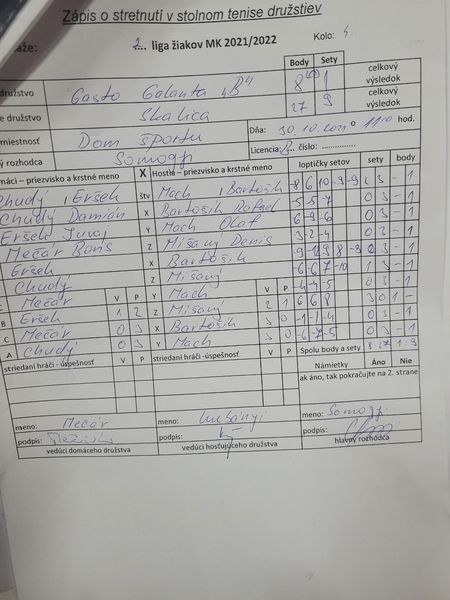 Zápis o stretnutí v stolnom tenise družstiev
2. liga žiakov MK 2021/2022 Kolo: 4.
Body Sety
družstvo Gasto Galanta „B" 8 1 celkový výsledok
e družstvo Skalica 27 9 celkový výsledok
miestnosť Dom športu Dňa: 30.10.2021 o 11:00 hod.
ý rozhodca Somogyi Licencia: číslo: ..............
máci - priezvisko a krstné meno X Hostia - priezvisko a krstné meno loptičky setov sety body
Chudý , Eršek štv Mach , Bartošík -8 6 10 -9 -9 2 3 - 1
Chudý Damián X Bartošík Rafael -5 -5 -7 0 3 - 1
Eršek Juraj Y Mach Olaf -6 -9 -6 0 3 - 1
Mečár Boris Z Mišany Denis -3 -2 -4 0 3 - 1
Eršek X Bartošík
Chudý Z Mišany 1 3 - 1
Mečár V P Y Mach V P -4 -4 -5 0 3 - 1
B Eršek 1 2 Z Mišany 2 1 6 6 8 3 0 1 -
C Mečár 0 3 X Bartošík 3 0 -1 -1 -4 0 3 - 1
A Chudý 0 3 Y Mach 3 0 -6 -7 -5 0 3 - 1
striedaní hráči - úspešnosť V P striedaní hráči -úspešnosť V P Spolu body a sety 8 27 1 9
Námietky Áno Nie
ak áno, tak pokračujte na 2. strane
meno: Mečár meno: meno: Somogyi
podpis: podpis: podpis:
vedúci domáceho družstva vedúci hosťujúceho družstva hlavný rozhodca